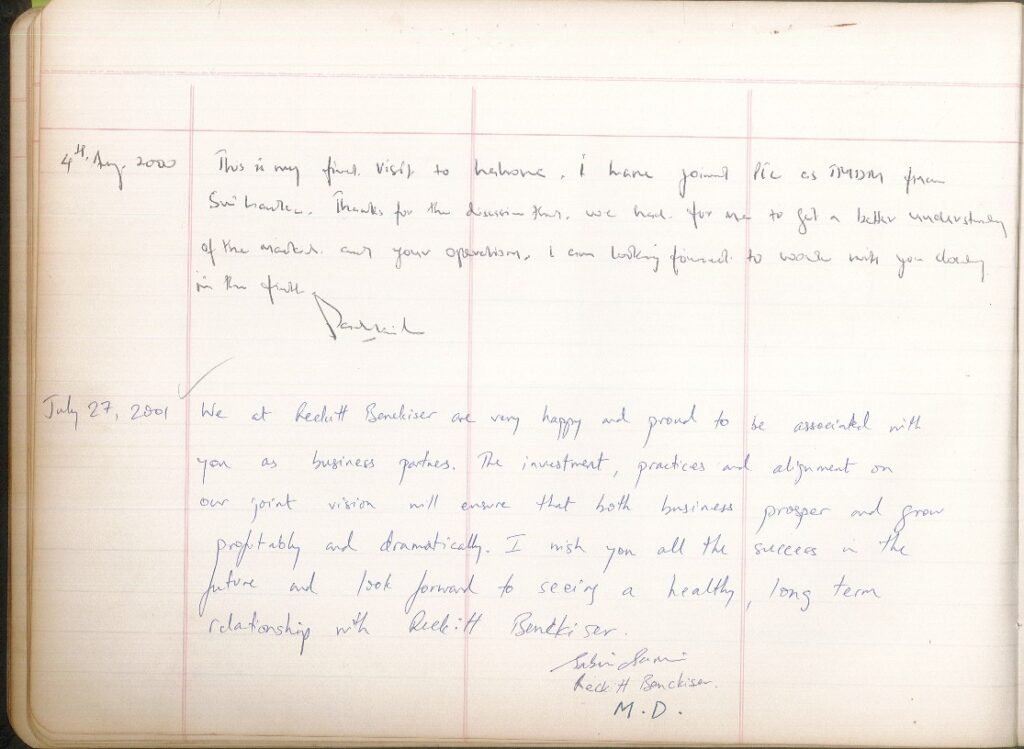 4th. Aug. 2000 This is my first visit to Lahore. I have joined PTC as TMDM from
Sri Lanka. Thanks for the discussion that we had for me to get a better understanding
of the market and your operations. I am looking forward to work with you closely
in the future.
July 27, 2001 We at Reckitt Benckiser are very happy and proud to be associated with
you as business partners. The investment, practices and alignment on
our joint vision will ensure that both business prosper and grow
profitably and dramatically. I wish you all the success in the
future and look forward to seeing a healthy, long term
relationship with Reckitt Benckiser.
Reckitt Benckiser.
M.D.